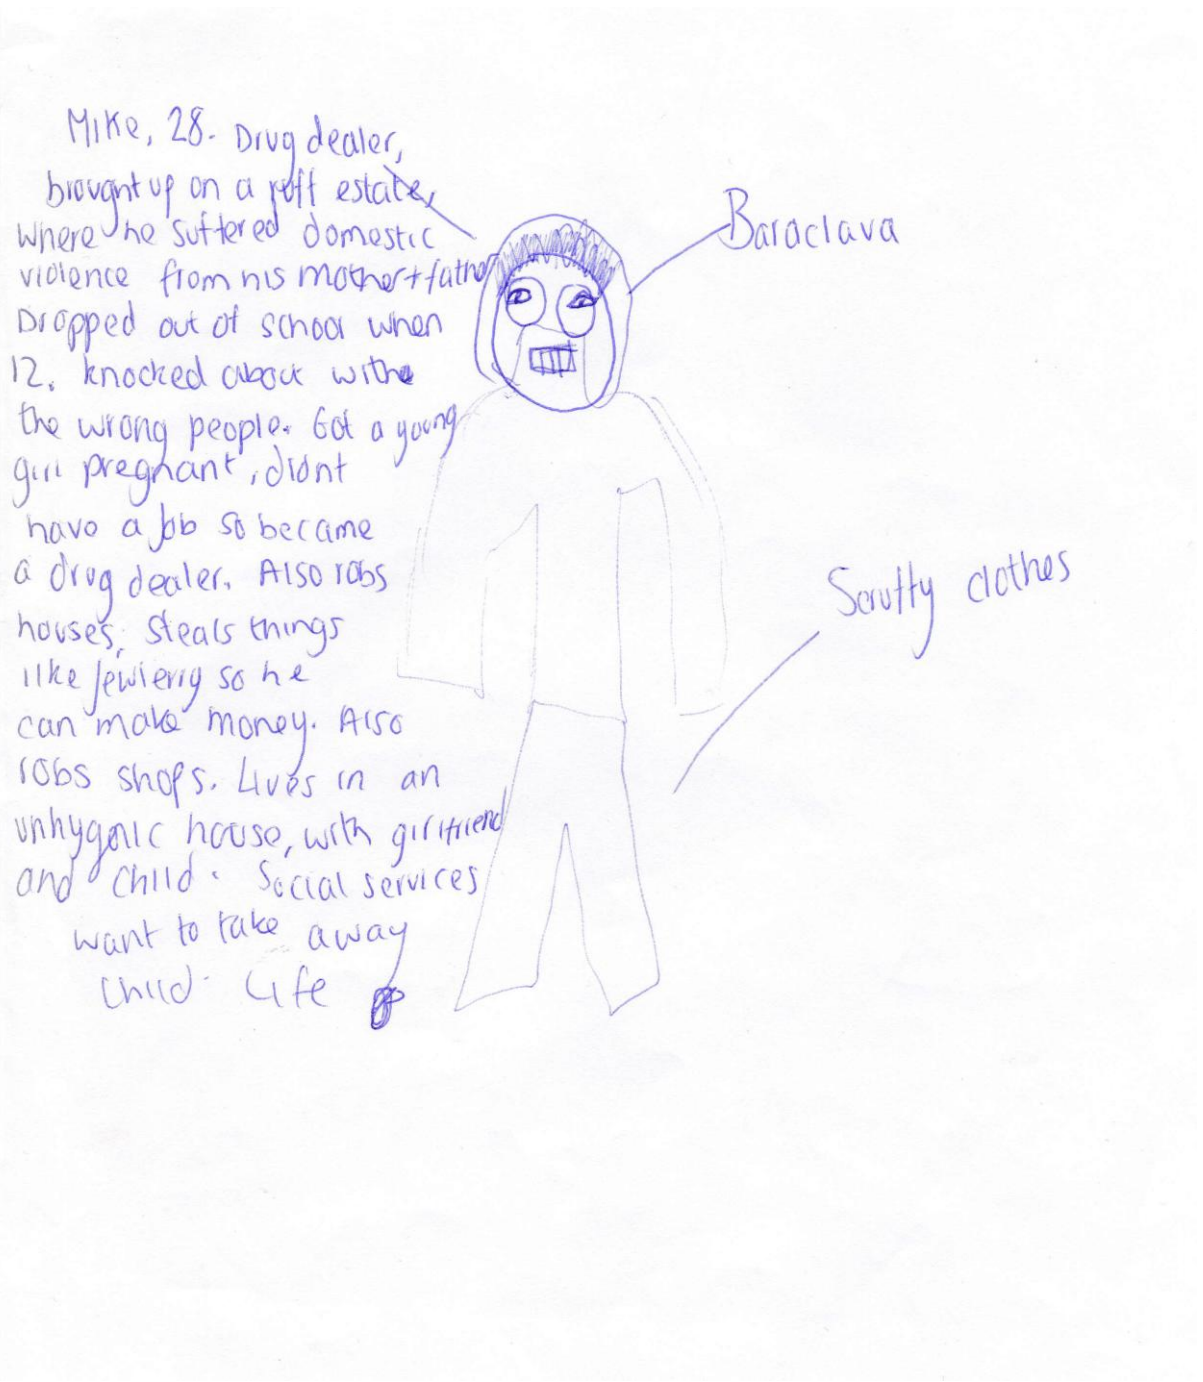 Mike, 28. Drug dealer,
brought up on a ruff estate,
where he suffered domestic
violence from his mother + father
Dropped out of school when
12. knocked about withe
the wrong people. Got a young
girl pregnant, didnt
have a job so became
a drug dealer. Also robs
houses, steals things
like jewlerry so he
can make money. Also
robs shops. Lives in an
unhygenic house, with girlfriend
and child. Social services
want to take away
child. Life
Baraclava
Scruffy clothes